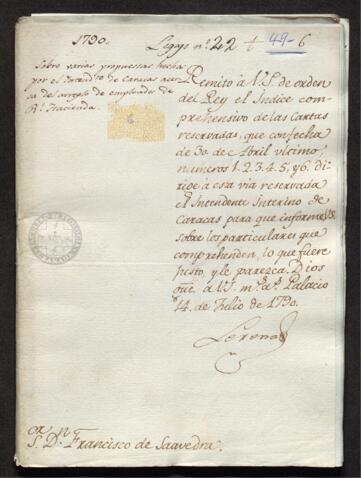 1790.
Legajo nº. 22 t 49-6
Sobre varias propuestas hechas
por el Intendte. de Caracas acer
ca del arreglo de empleados de
Rl. Hacienda.
6
Remito à V.S. de orden
del Rey el Indice com-
prehensivo de las Cartas
reservadas, que con fecha
de 30 de Abril ultimo,
numeros 1. 2. 3. 4. 5. y 6. di-
rige à esta via reservada
el Intendente Interino de
Caracas para que informe V.S.
sobre los particulares que
comprehenden, lo que fuere
justo, y le parezca. Dios
gue. à V.S. ms. as. Palacio
14. de Julio de 1790.
Lerena
Sor. Dn. Francisco de Saavedra.